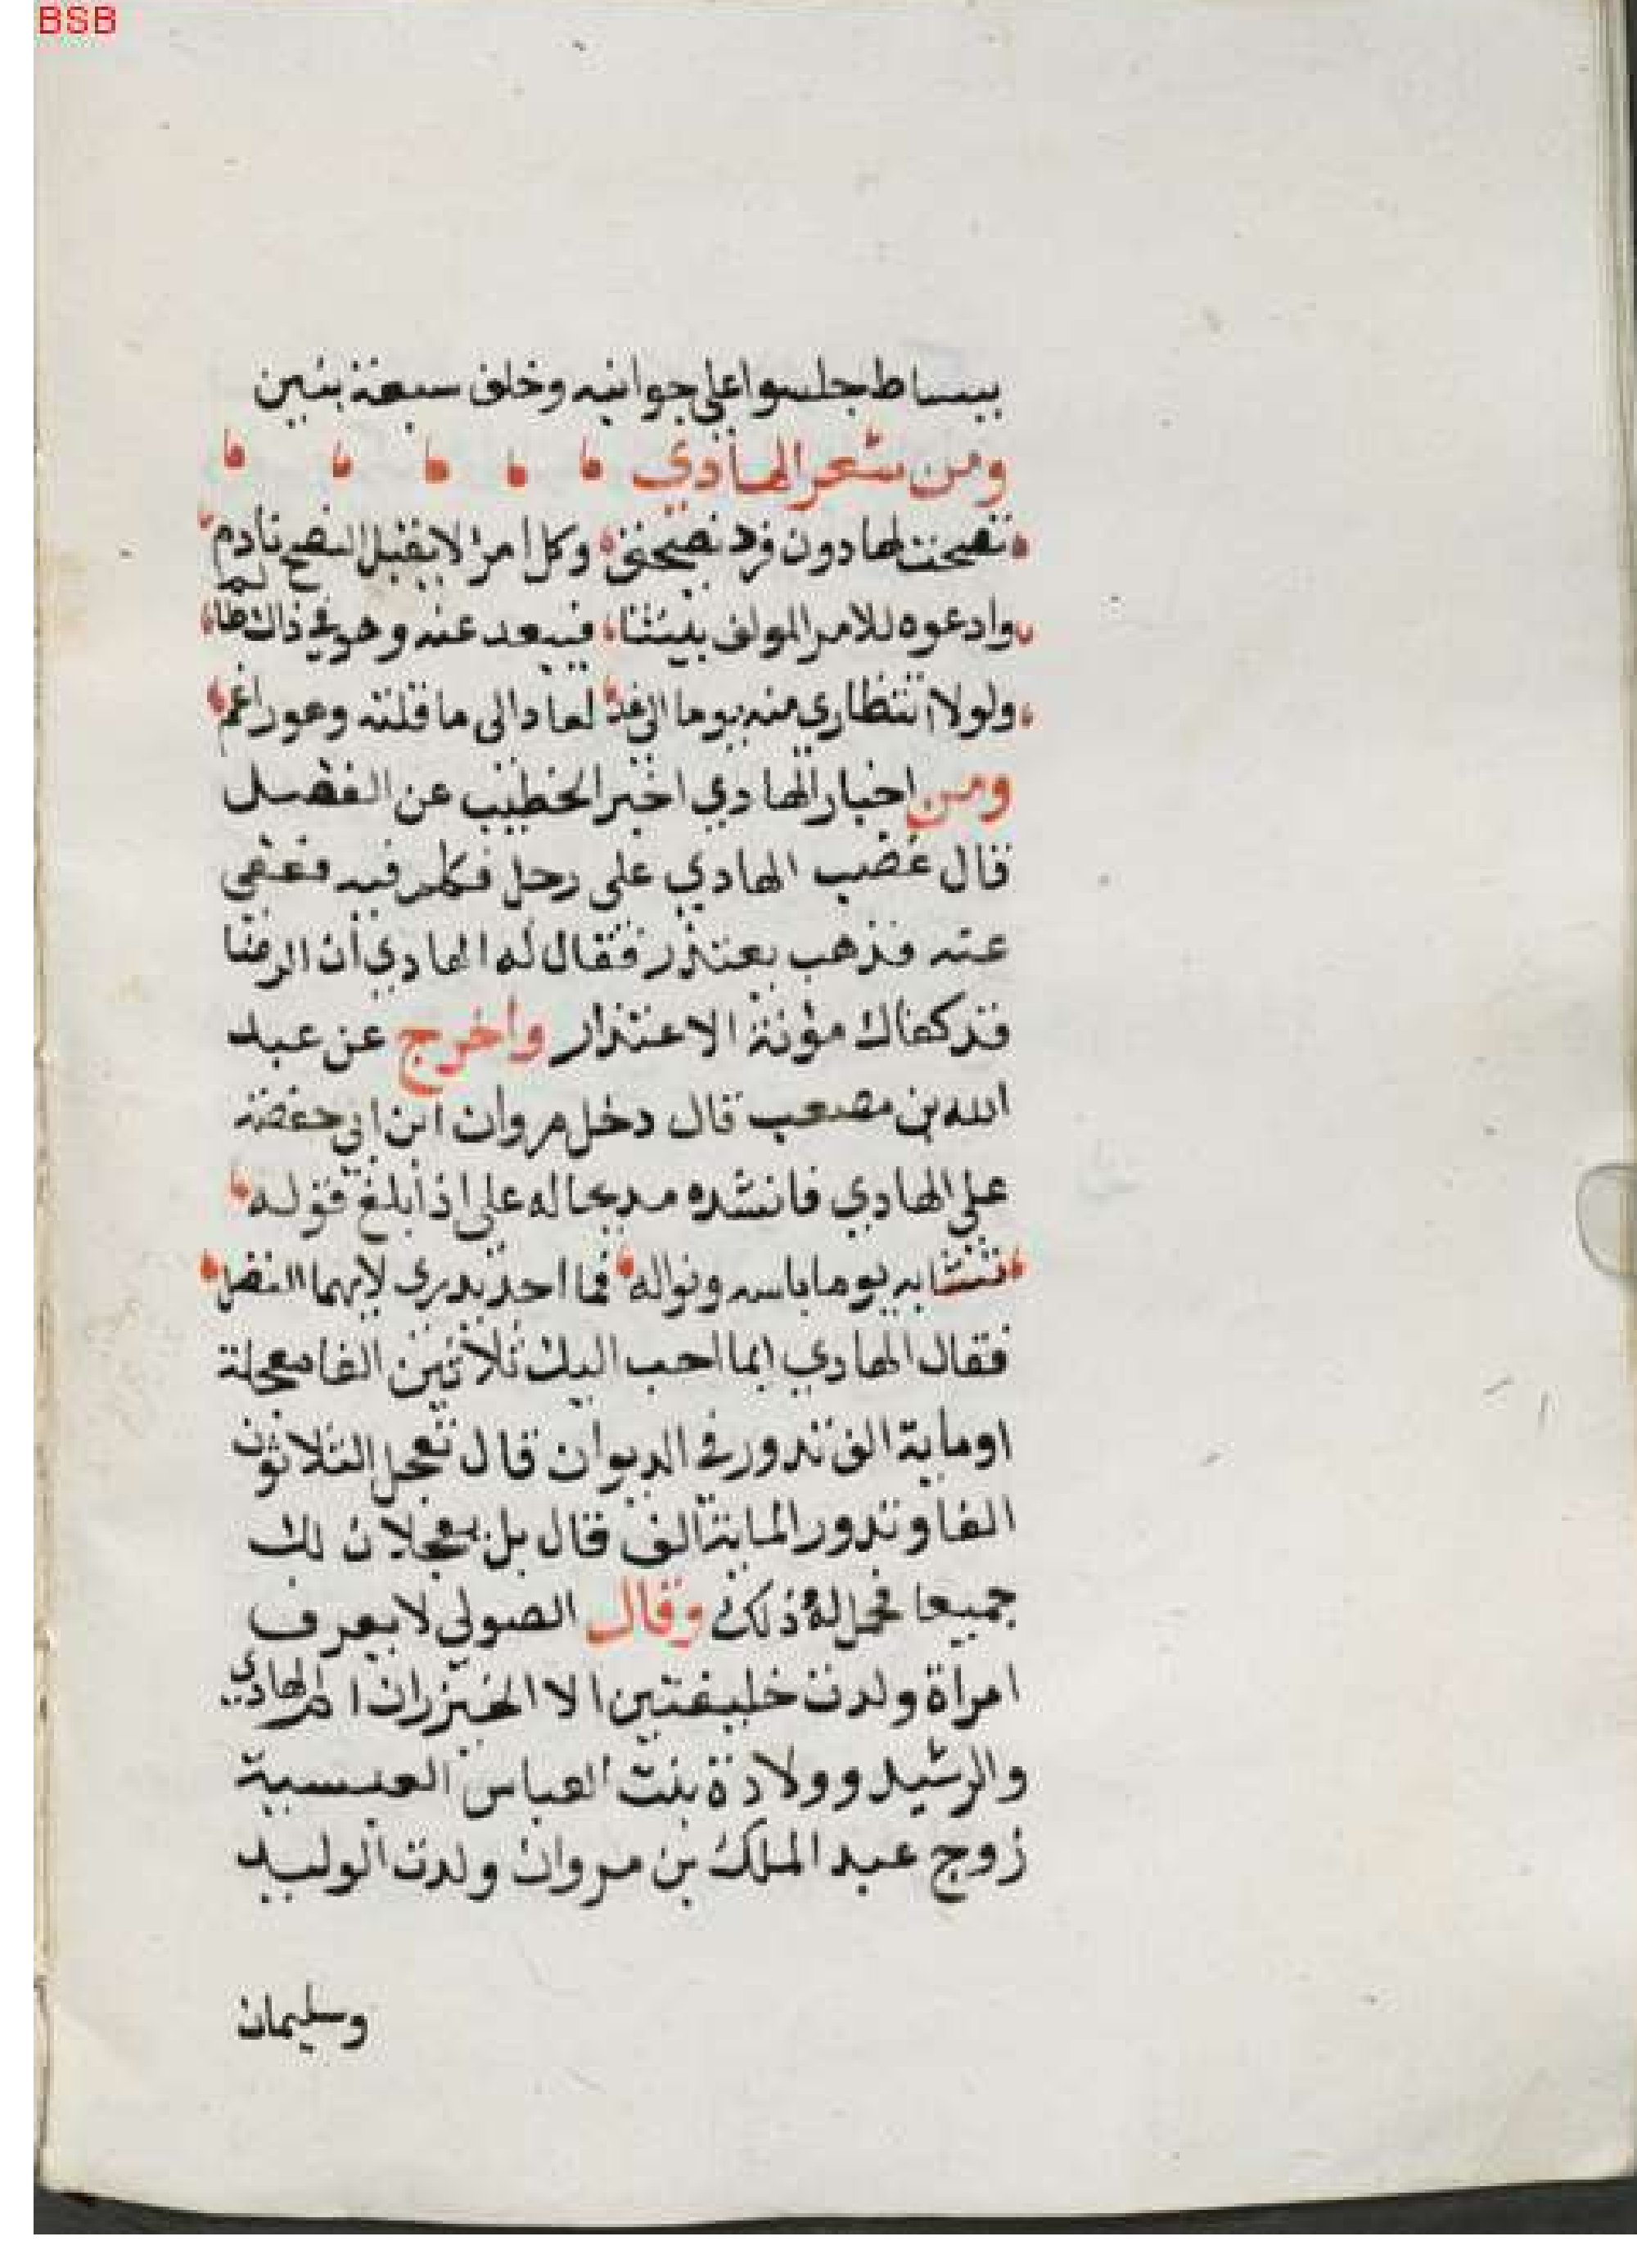 BSB
ببساط جلسوا على جوانبه وخلف سبعة بنين
ومن شعر الهادي
نصحت لهادون فرد نصيحتى وكل امرا لا يقبل النصح نادم
وادعوه للامر المولف بيننا فيبعد عنه وهو في ذاك ظالم
ولولا انتظاري منه يوما الى غد لعاد الى ما قلته وهو راغم
ومن اخبار الهادي اخبر الخطيب عن الفضل
قال غضب الهادي على رجل فكلم فيه فعفى
عنه فذهب يعتذر فقال له الهادي ان الرضا
قد كفاك مؤنة الاعتذار واخرج عن عبد
الله بن مصعب قال دخل مروان ابن ابي حفصة
على الهادي فانشده مديحا له على اذا بلغ قوله
تشابه يوما باسه ونواله فما احد يدرى لايهما الفضل
فقال الهادي ايما احب اليك ثلاثين الفا معجلة
او ماية الف تدور في الديوان قال تعجل الثلاثون
الفا وتدور الماية الف قال بل يعجلان لك
جميعا فحمل له ذلك وقال الصولي لا يعرف
امراة ولدت خليفتين الا الخيزران ام الهادي
والرشيد وولادة بنت العباس العبسية
زوج عبد الملك بن مروان ولدت الوليد
وسليمان